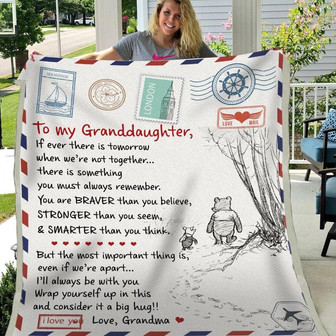 LONDON
LOVE MAIL
To my Granddaughter,
If ever there is tomorrow
when we're not together...
there is something
you must always remember.
You are BRAVER than you believe,
STRONGER than you seem,
& SMARTER than you think.
But the most important thing is,
even if we're apart...
I'll always be with you
Wrap yourself up in this
and consider it a big hug!!
i love you Love, Grandma